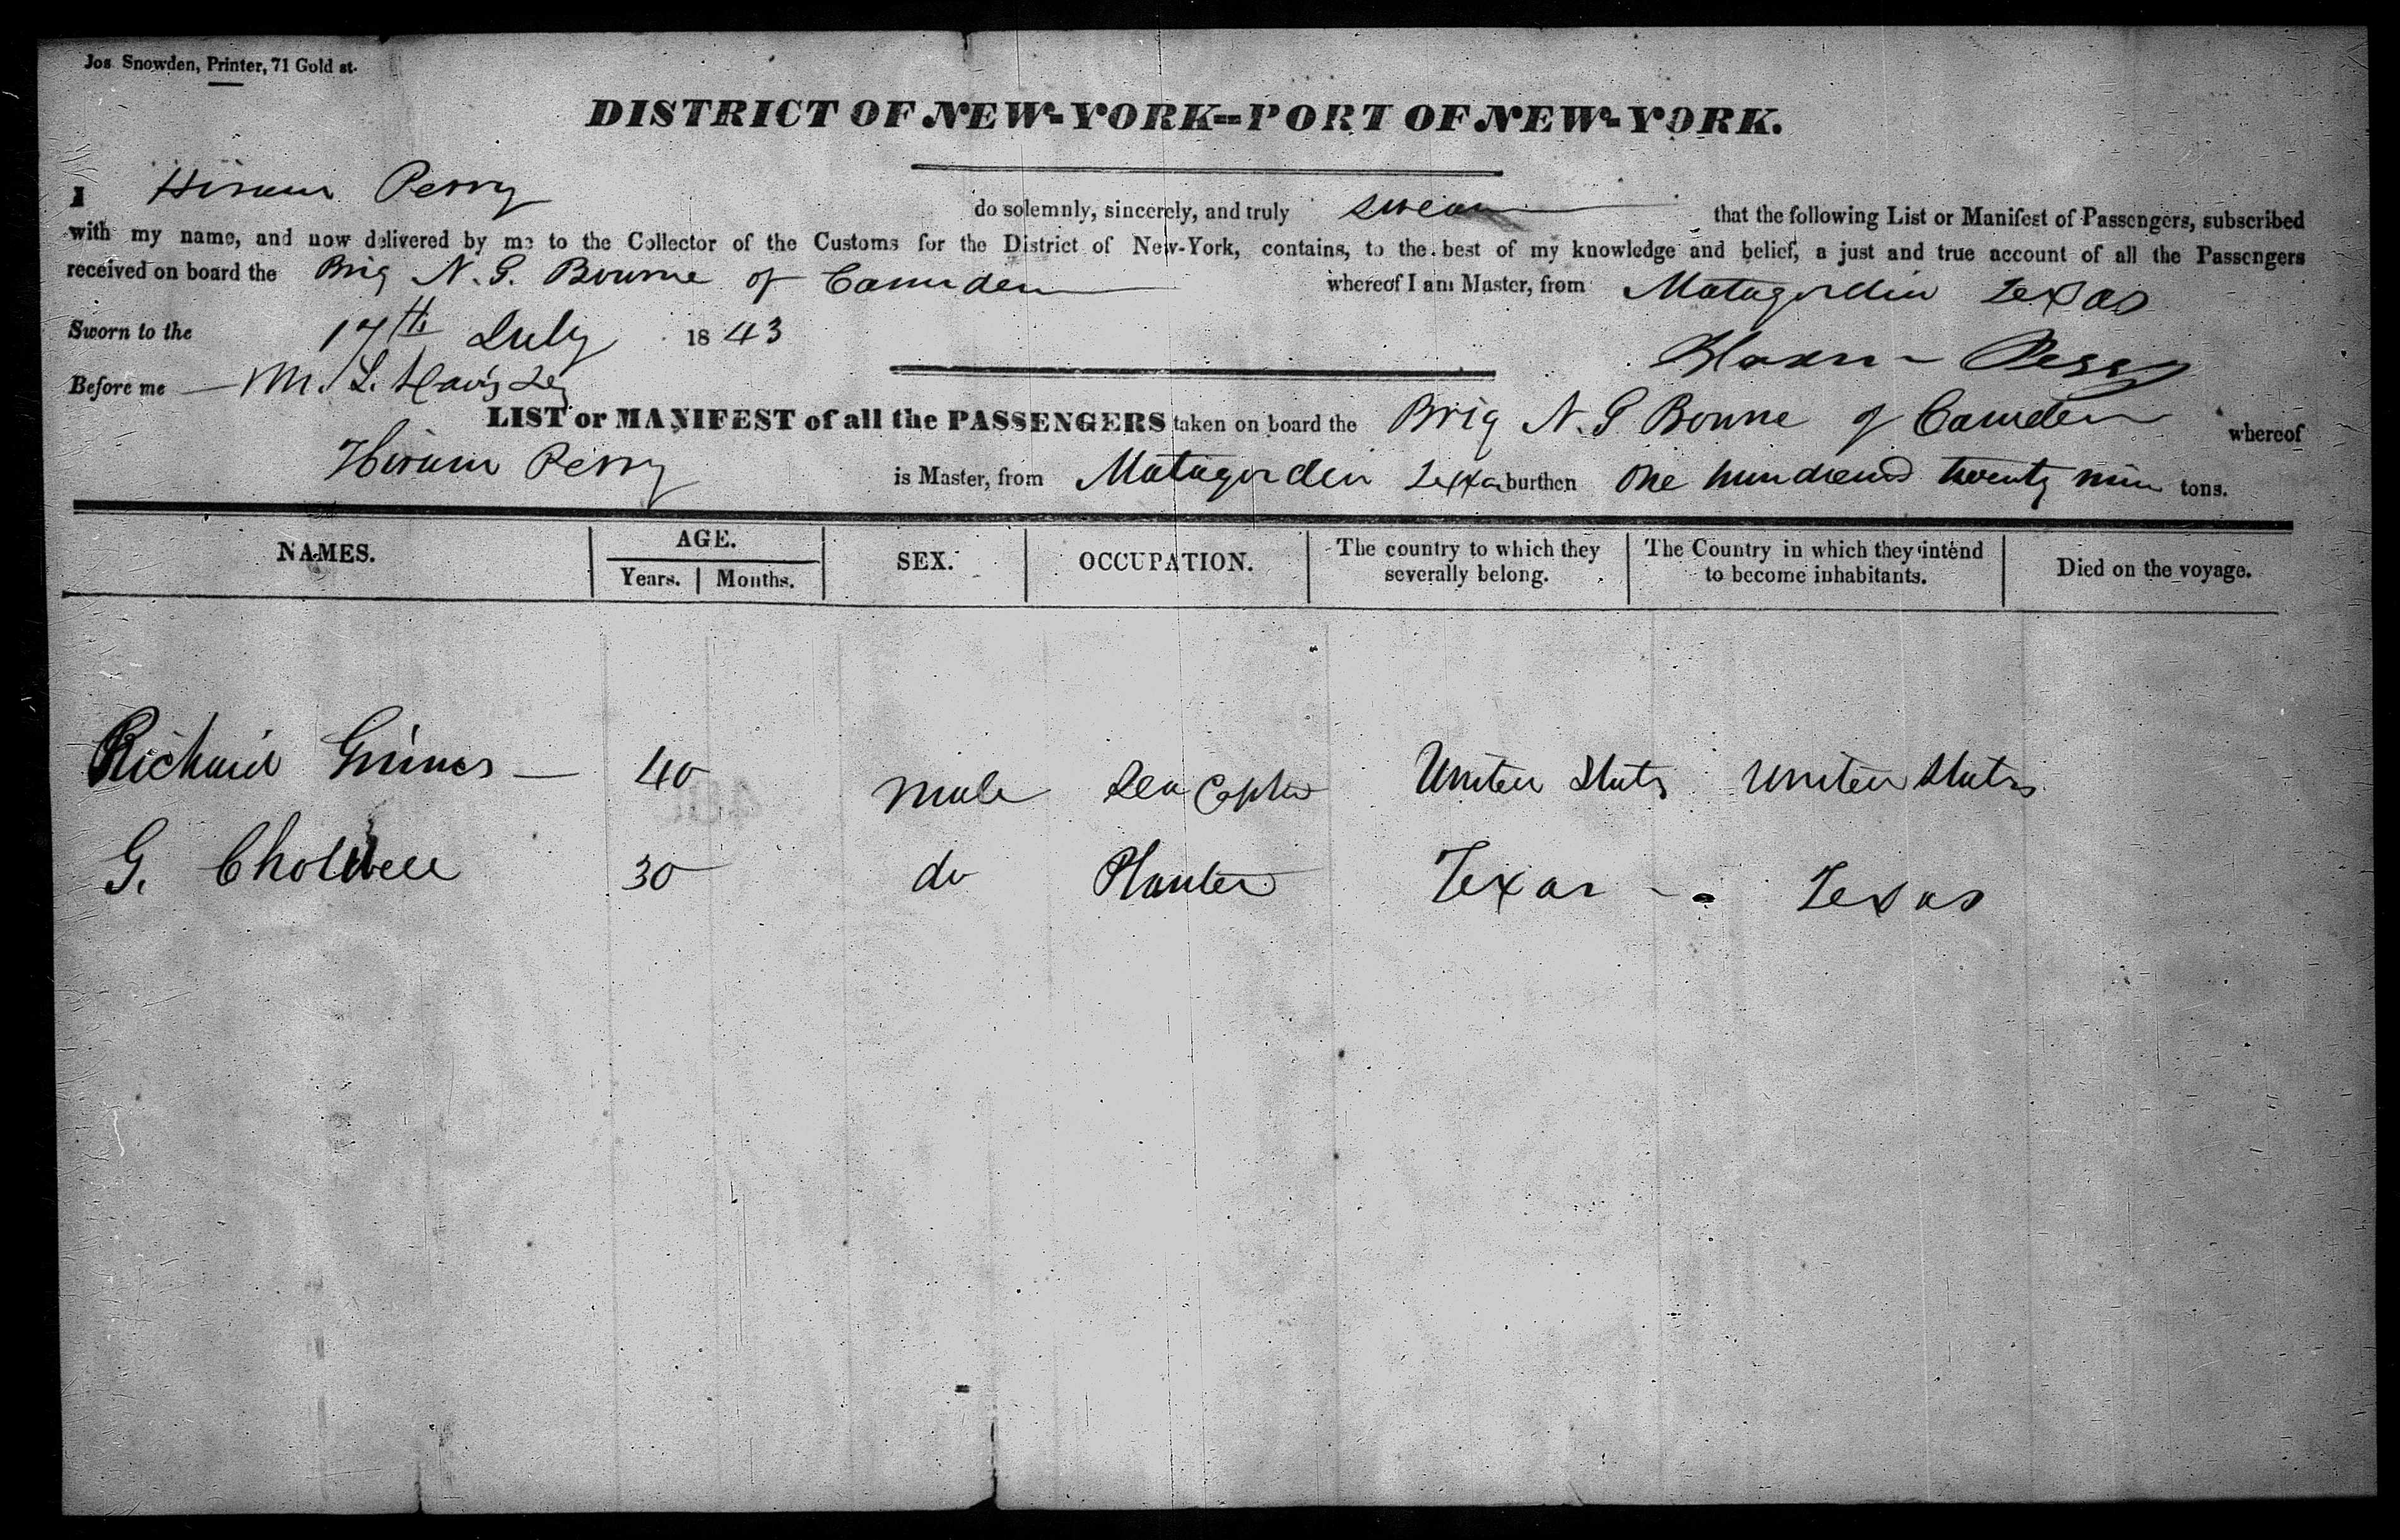 Jos Snowden, Printer, 71 Gold st.
DISTRICT OF NEW-YORK--PORT OF NEW-YORK.
I Hiram Perry do solemnly, sincerely, and truly swear that the following List or Manifest of Passengers, subscribed
with my name, and now delivered by me to the Collector of the Customs for the District of New-York, contains, to the best of my knowledge and belief, a just and true account of all the Passengers
received on board the Brig N. G. Bourne of Camden whereof I am Master, from Matagordia Texas
Sworn to the 17th July 1843
Hiram Perry
Before me M. L. Davis
LIST or MANIFEST of all the PASSENGERS taken on board the Brig N. G Bourne of Camden whereof
Hiram Perry is Master, from Matagorda Texas burthen One hundred twenty nine tons.
NAMES. AGE. SEX. OCCUPATION. The country to which they severally belong. The Country in which they intend to become inhabitants. Died on the voyage.
Years. Months.
Richard Grimes 40 male Sea Captn United States United States
G. Cholwell 30 do Planter Texas Texas